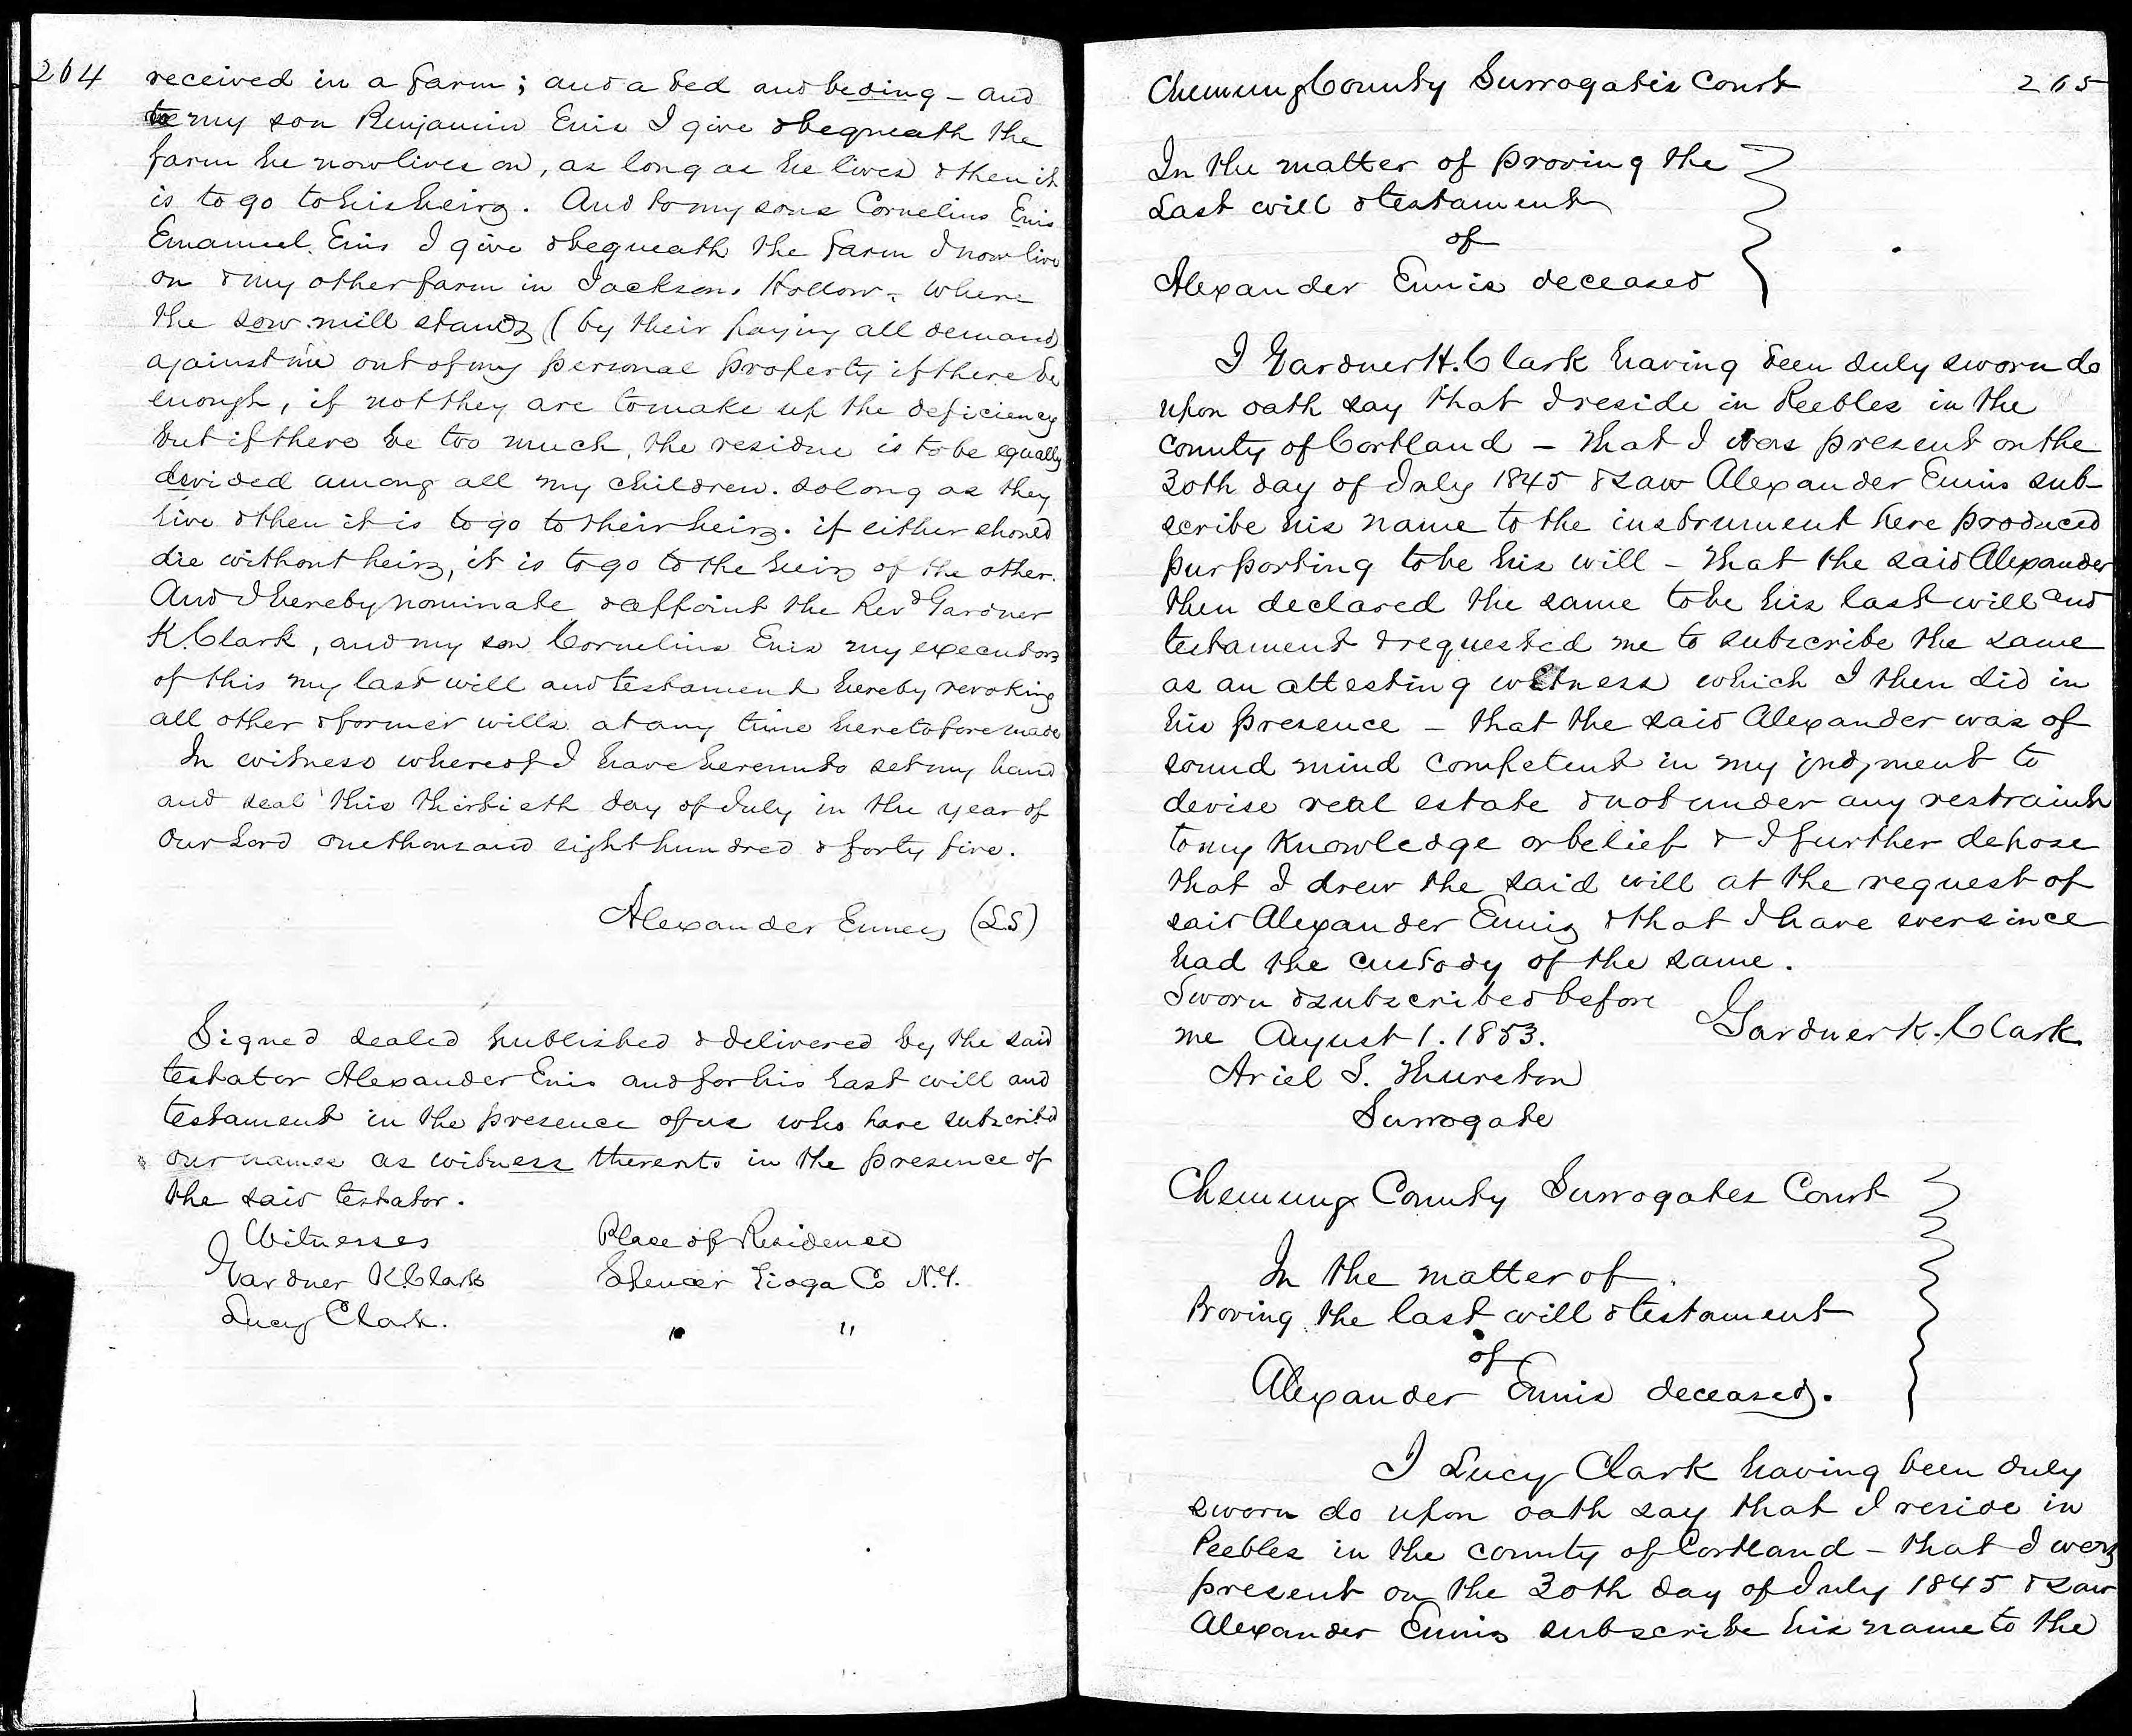 264
received in a farm; and a bed and beding - and
to my son Benjamin Enis I give & bequeath the
farm he now lives on, as long as he lives & then it
is to go to his heirs. And to my sons Cornelius Enis
Emanuel Enis I give & bequeath the farm I now live
on & my other farm in Jacksons Hollow - where
the sow mill stands (by their paying all demands
against me out of my personal property if there be
enough, if not they are to make up the deficiency
but if there be too much, the residue is to be equally
devided among all my children. so long as they
live & then it is to go to their heirs. if either should
die without heirs, it is to go to the heirs of the other.
And I hereby nominate & appoint the Revd Gardner
K. Clark, and my son Cornelius Enis my executors
of this my last will and testament hereby revoking
all other & former wills at any time heretofore made
In witness whereof I have hereunto set my hand
and seal this thirtieth day of July in the year of
Our Lord one thousand eight hundred & forty five.
Alexander Enneis (LS)
Signed sealed published & delivered by the said
testator Alexander Enis and for his last will and
testament in the presence of us who have subscribd
our names as witness thereto in the presence of
the said testator.
Witnesses Place of Residence
Gardner K Clark Spencer Tioga Co N.Y.
Lucy Clark. " "
265
Chemung County Surrogates Court
In the matter of proving the
Last will & testament
of
Alexander Ennis deceased
I Gardner H. Clark having been duly sworn do
upon oath say that I reside in Peebles in the
county of Cortland - that I was present on the
30th day of July 1845 & saw Alexander Ennis sub-
scribe his name to the instrument here produced
purporting to be his will - that the said Alexander
then declared the same to be his last will and
testament & requested me to subscribe the same
as an attesting witness which I then did in
his presence - that the said Alexander was of
sound mind competent in my judgment to
devise real estate & not under any restraint
to my knowledge or belief & I further depose
that I drew the said will at the request of
said Alexander Ennis & that I have ever since
had the custody of the same.
Sworn & subscribed before
me August 1. 1853. Gardner K. Clark
Ariel S. Thurston
Surrogate
Chemung County Surrogates Court
In the matter of
Proving the last will & testament
of
Alexander Ennis deceased.
I Lucy Clark having been duly
sworn do upon oath say that I reside in
Peebles in the county of Cortland - that I was
present on the 30th day of July 1845 & saw
Alexander Ennis subscribe his name to the